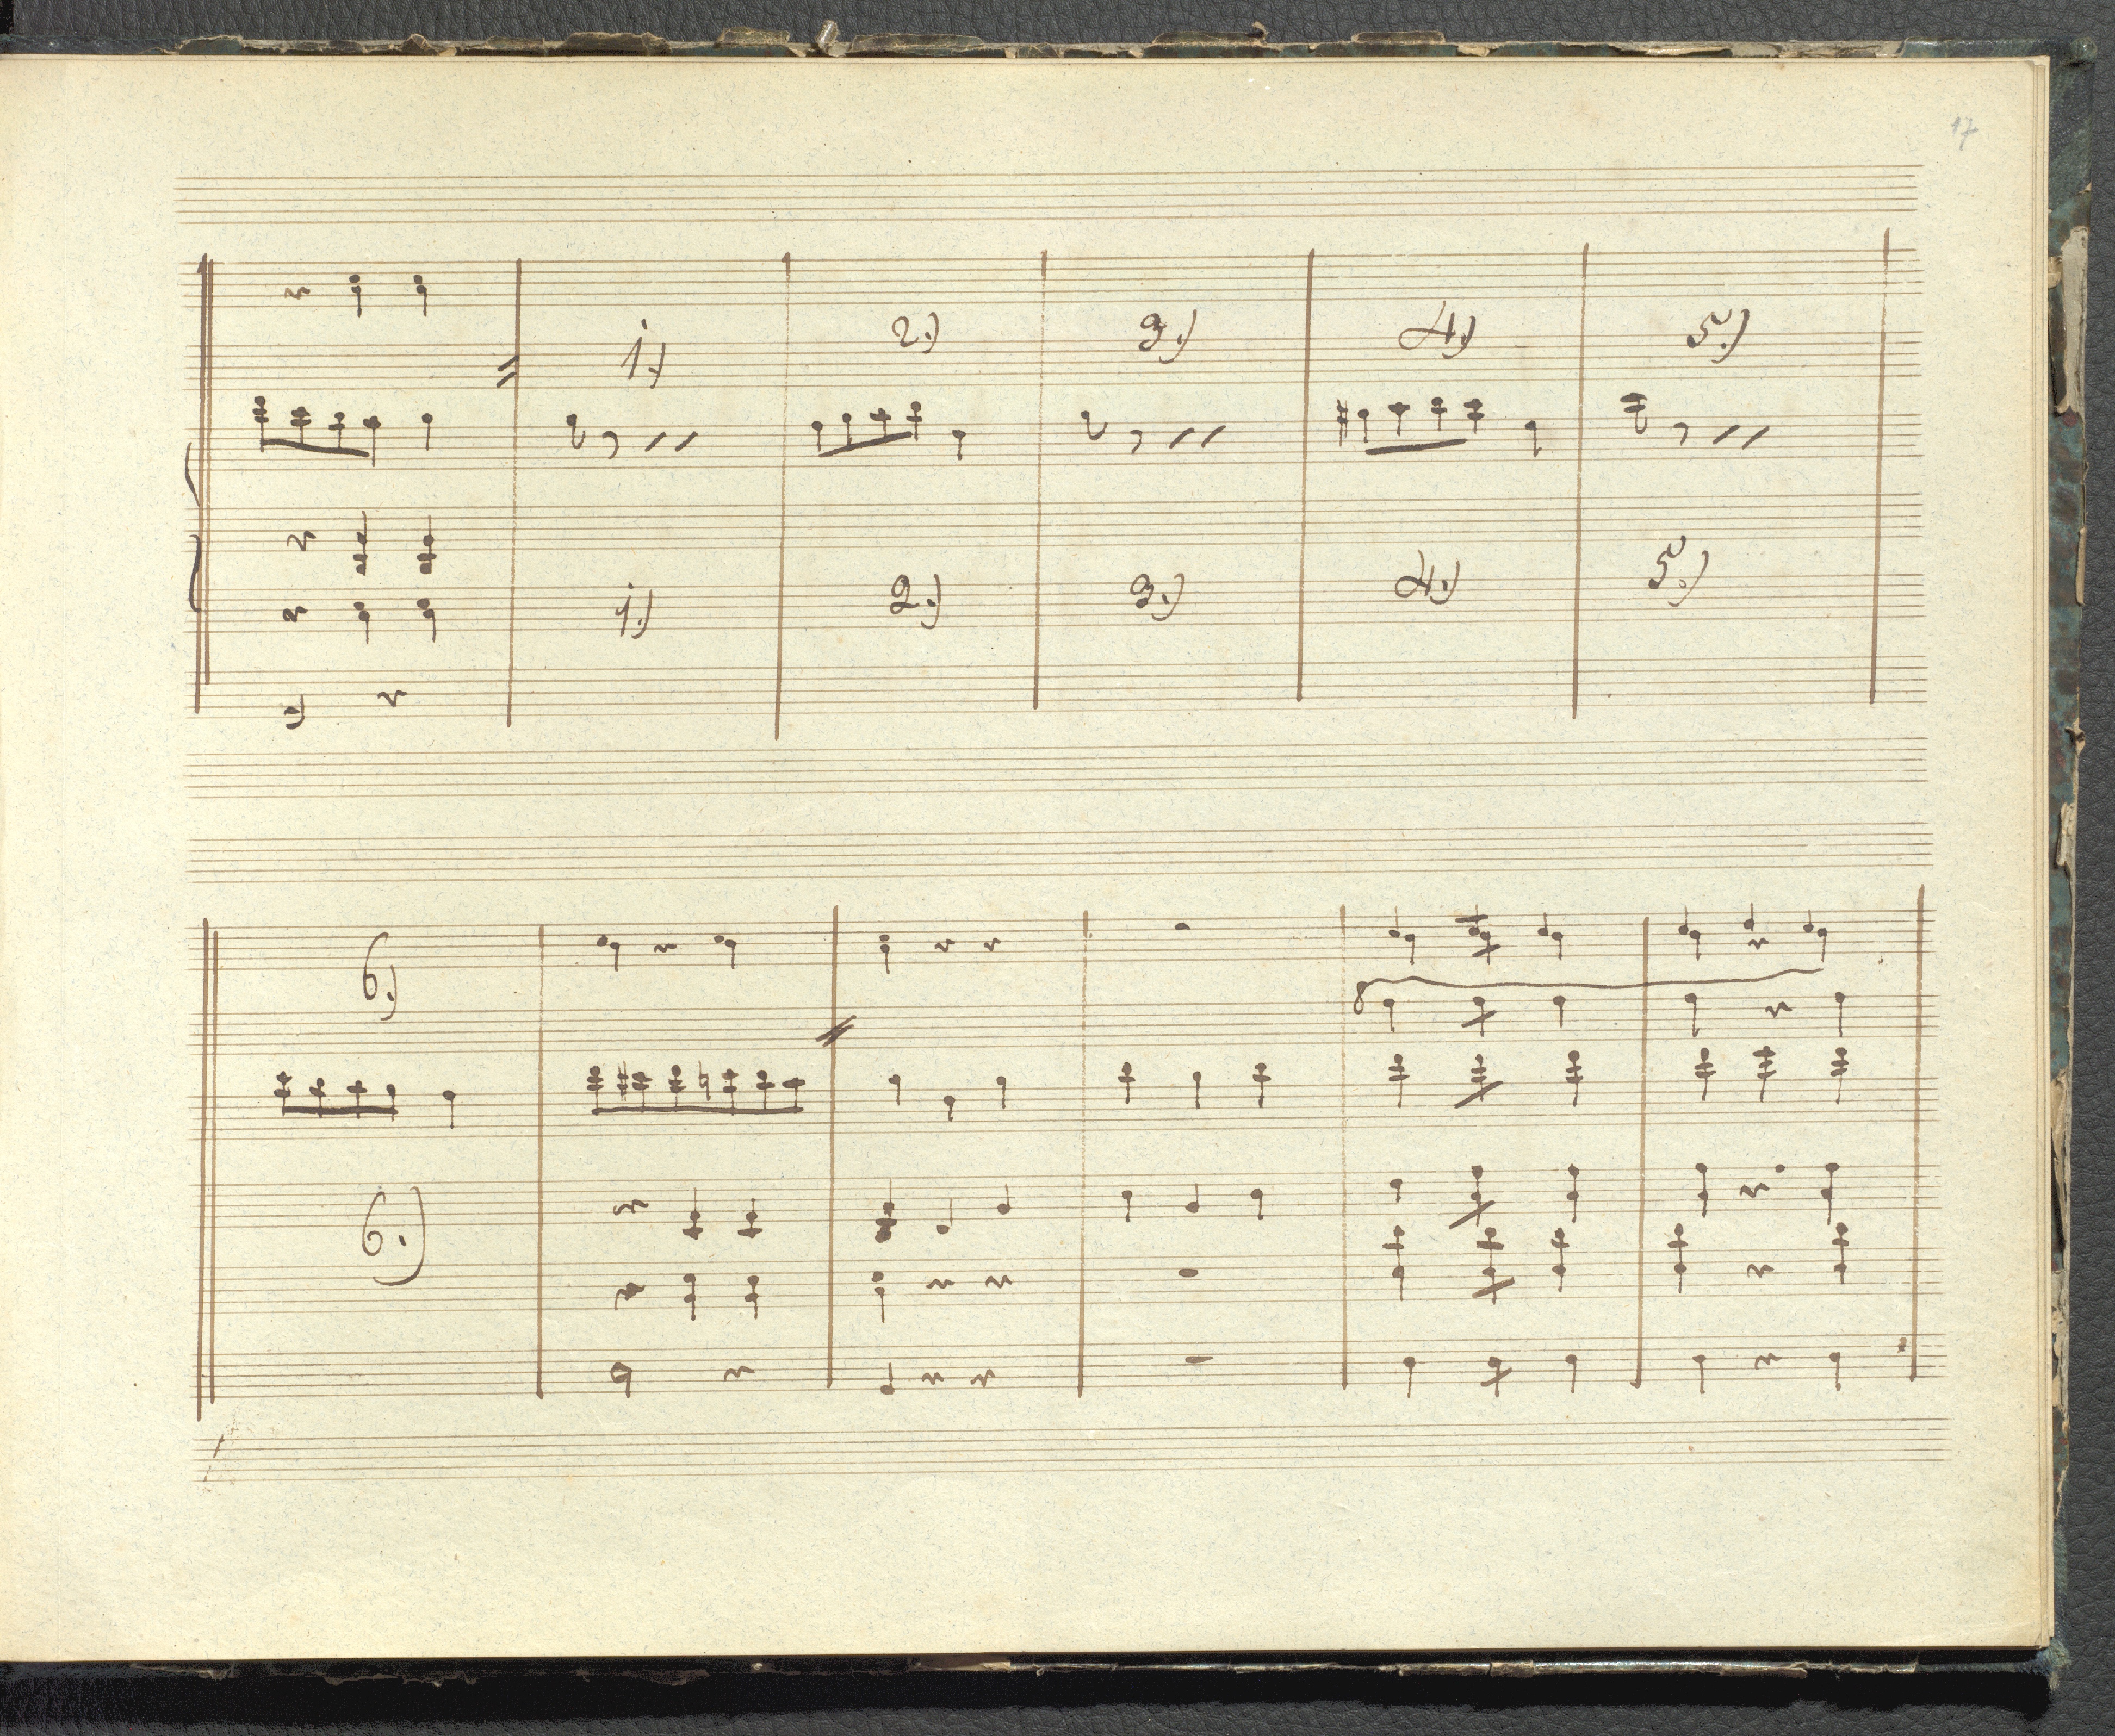 17
1.) 2.) 3.) 4.) 5.)
1.) 2.) 3.) 4.) 5.)
6.)
8
6.)